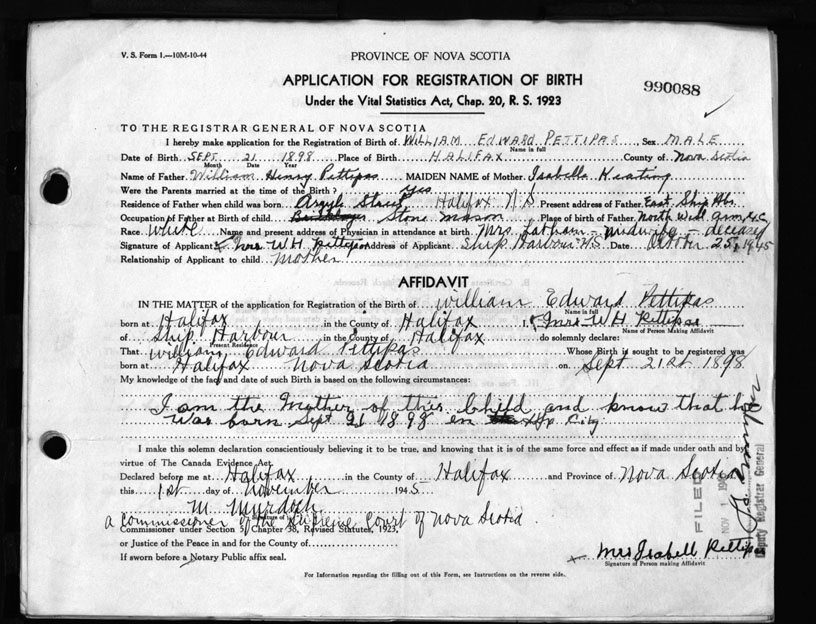 V. S. Form 1.—10M-10-44
PROVINCE OF NOVA SCOTIA
APPLICATION FOR REGISTRATION OF BIRTH
990088
Under the Vital Statistics Act, Chap. 20, R. S. 1923
TO THE REGISTRAR GENERAL OF NOVA SCOTIA
I hereby make application for the Registration of Birth of WILLIAM EDWARD PETTIPAS, Sex MALE
Name in full
Date of Birth SEPT 21 1898 Place of Birth HALIFAX County of Nova Scotia
Month Day Year
Name of Father William Henry Pettipas MAIDEN NAME of Mother Isabella Keating
Were the Parents married at the time of the Birth? yes
Residence of Father when child was born Argyle Street Halifax N.S Present address of Father East Ship Hbr
Occupation of Father at Birth of child Stone Mason Place of birth of Father North West Arm
Race White Name and present address of Physician in attendance at birth Mrs Latham - midwife - deceased
Signature of Applicant Mrs W H Pettipas Address of Applicant Ship Harbour N.S. Date October 25, 1945
Relationship of Applicant to child mother
AFFIDAVIT
IN THE MATTER of the application for Registration of the Birth of William Edward Pettipas
Name in full
born at Halifax in the County of Halifax I, Mrs W H Pettipas
Name of Person Making Affidavit
of Ship Harbour in the County of Halifax do solemnly declare:
Present Residence
That William Edward Pettipas Whose Birth is sought to be registered was
born at Halifax Nova Scotia on Sept 21st 1898
My knowledge of the fact and date of such Birth is based on the following circumstances:
I am the Mother of this Child and know that he
was born Sept 21 1898 in City
I make this solemn declaration conscientiously believing it to be true, and knowing that it is of the same force and effect as if made under oath and by
virtue of The Canada Evidence Act.
Declared before me at Halifax in the County of Halifax and Province of Nova Scotia
this 1st day of November 1945
M. Murdoch
Signature of
a Commissioner of the Supreme Court of Nova Scotia.
Commissioner under Section 5, Chapter 38, Revised Statutes, 1923,
or Justice of the Peace in and for the County of
If sworn before a Notary Public affix seal.
Mrs Isabell Pettipas
Signature of Person making Affidavit
For Information regarding the filling out of this Form, see Instructions on the reverse side.
FILED
NOV 1
Deputy Registrar General